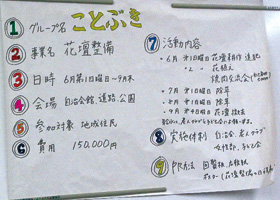 ① グループ名 ことぶき
② 事業名 花壇整備
③ 日時 6月第1日曜日〜9月末
④ 会場 自治会館、道路、公園
⑤ 参加対象 地域住民
⑥ 費用 150,000円
⑦ 活動内容
・6月 第1日曜日 花壇耕作 追肥
〃 花植え
焼肉交流会
・7月 第1日曜日 除草
・8月 第1日曜日 除草
・9月
⑧ 実施体制 自治会 老人クラブ
女性部、子ども会
⑨ PR方法 回覧板